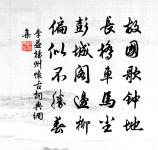 故國歌鐘地
長橋車馬塵
彭城閣邊柳
偏似不勝春
李益揚州懷古詞典網
集